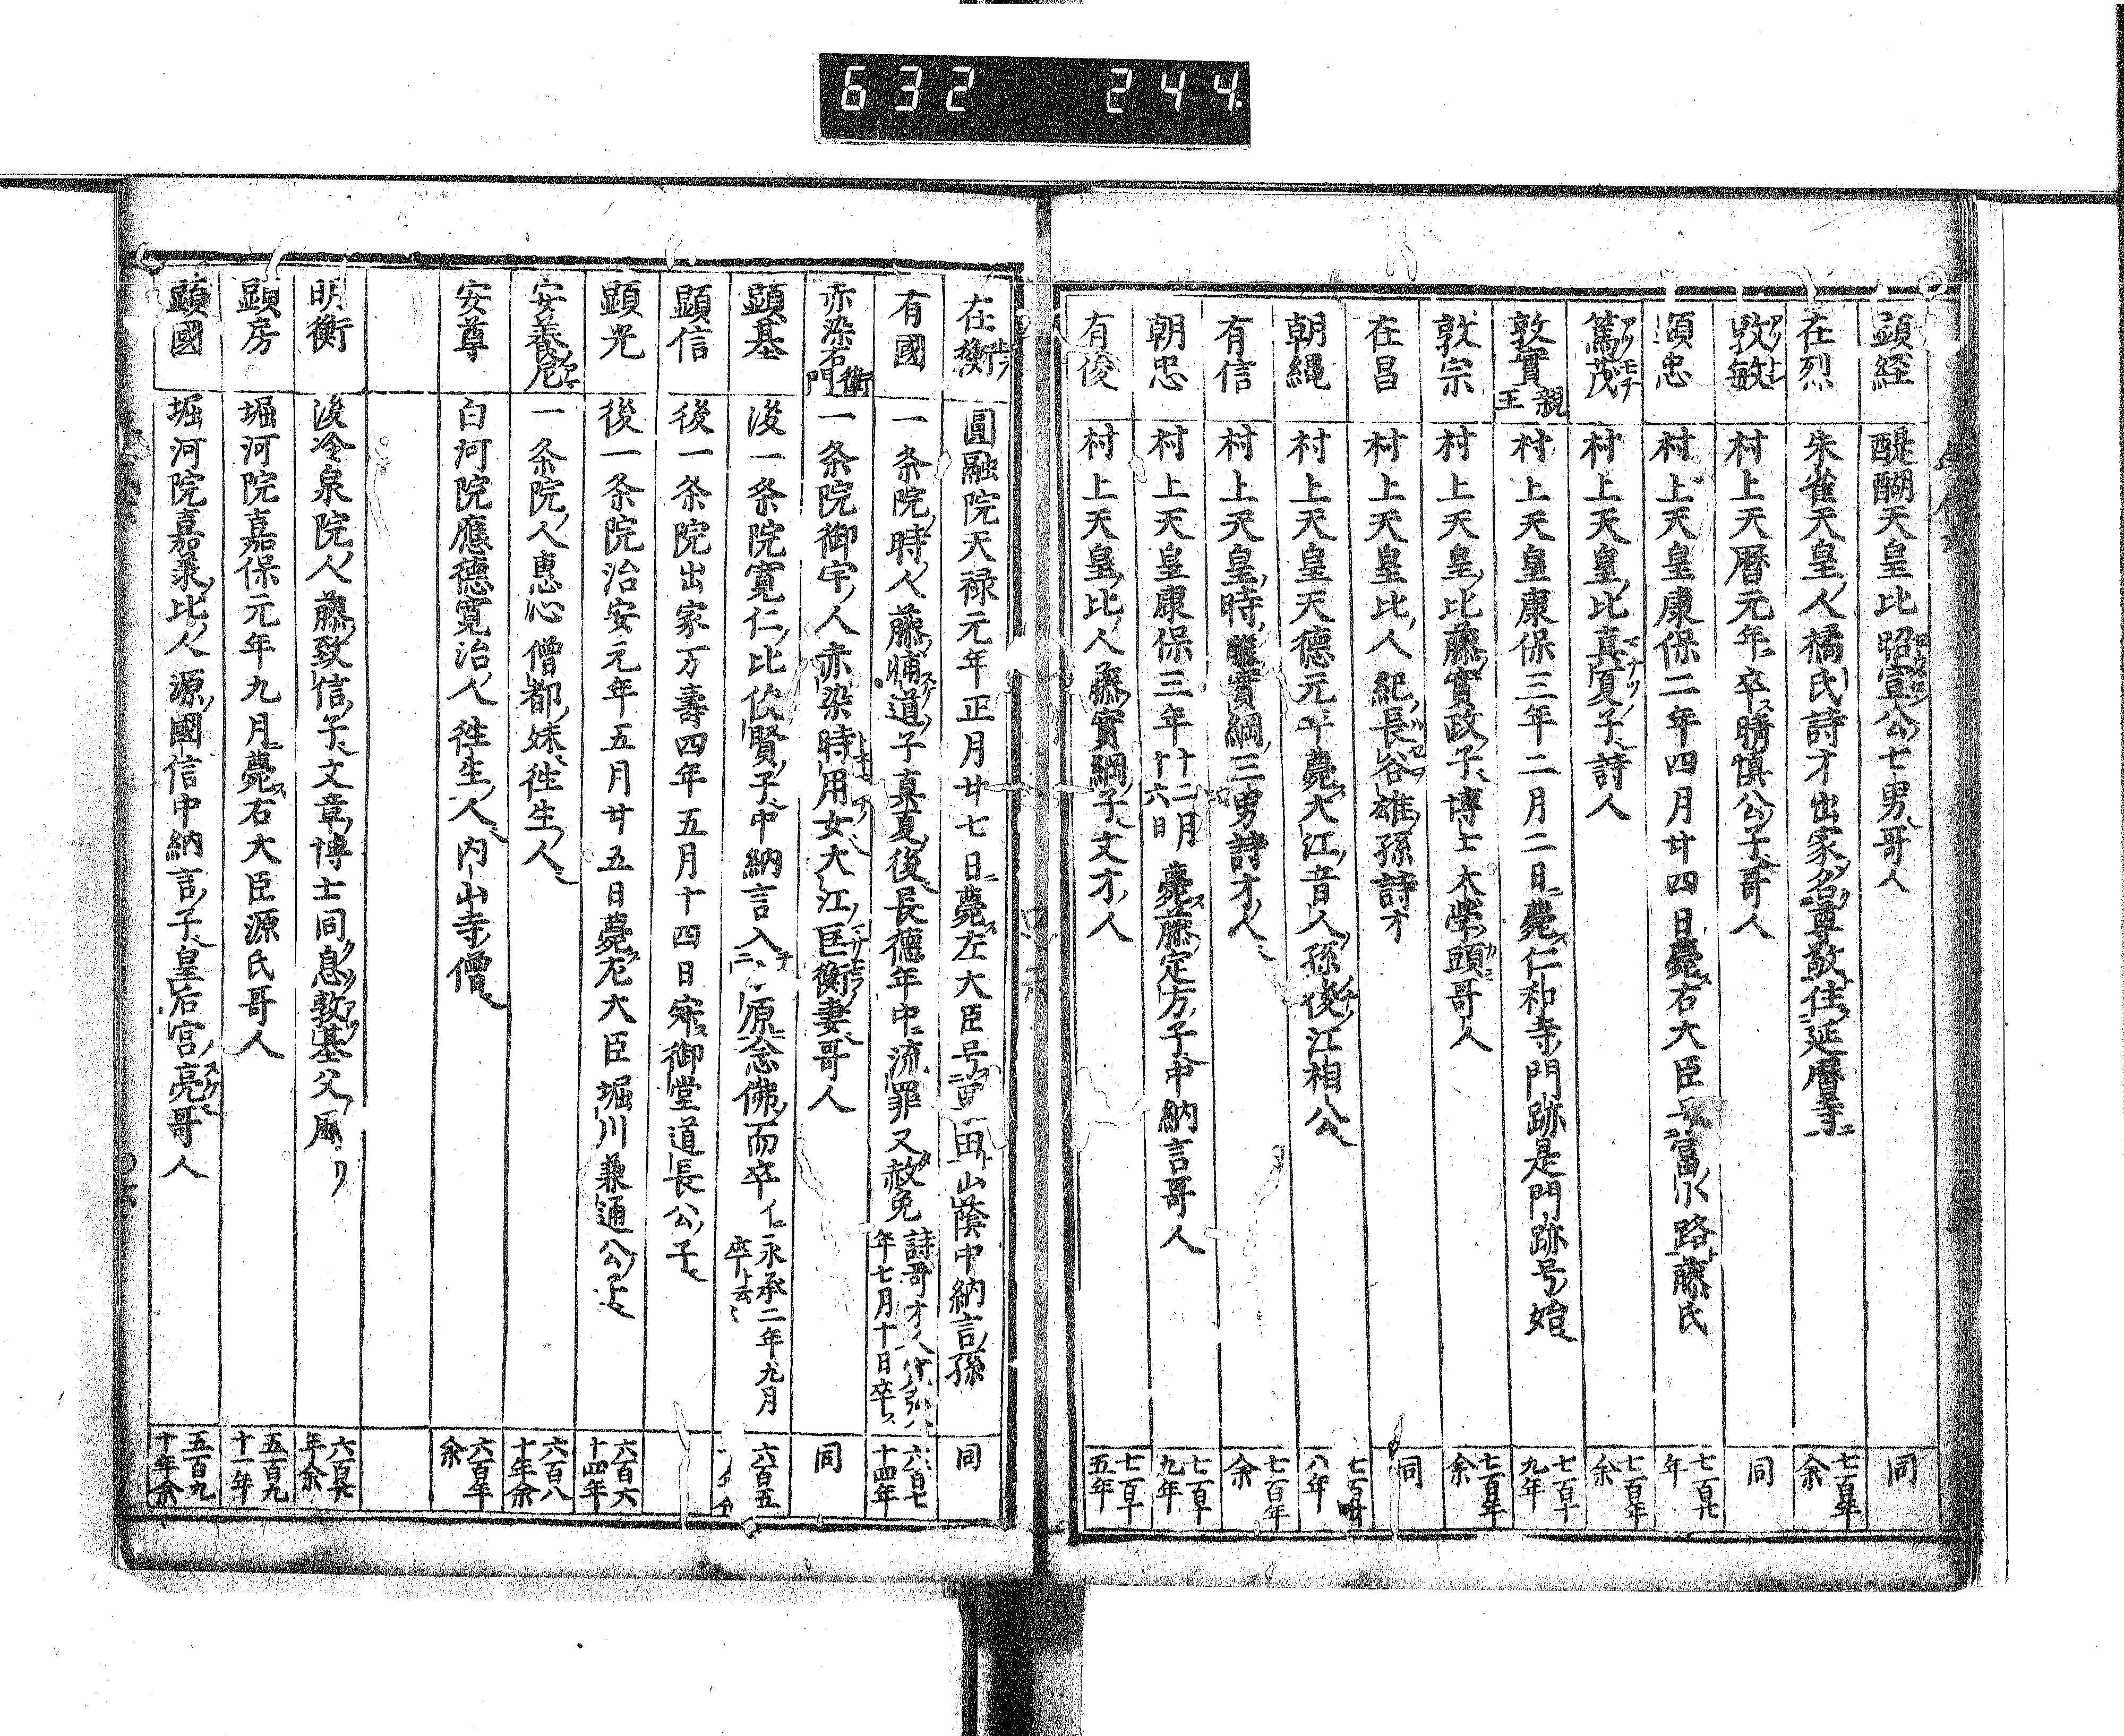 632 244
顕経 醍醐天皇比昭宣公七男哥人 同
在烈 朱雀天皇ノ人橘氏詩才出家名尊敬住延暦寺ニ 七百年余
敦敏 村上天暦元年ニ卒ス清慎公ノ子哥人 同
顕忠 村上天皇康保二年四月廿四日薨ス右大臣号富小路藤氏 七百廿年
篤茂 村上天皇ノ比真夏ノ子詩人 七百年余
敦實親王 村上天皇康保三年二月二日ニ薨ス仁和寺ノ門跡是門跡号ノ始 七百十九年
敦宗 村上天皇ノ比藤實政ノ子博士大学頭哥人 七百年余
在昌 村上天皇ノ比ノ人紀ノ長谷雄ノ孫詩才 同
朝縄 村上天皇天德元年薨ス大江ノ音人ノ孫後ノ江相公 八年
有信 村上天皇ノ時ノ實綱ノ三男詩才ノ人 七百年余
朝忠 村上天皇康保三年十二月十六日薨ス藤ノ定方ノ子中納言哥人 七百十九年
有俊 村上天皇ノ比ノ人藤ノ實綱ノ子文才ノ人 七百十五年
在衡 圓融院天禄元年正月廿七日ニ薨ス左大臣号田山蔭中納言ノ孫 同
有國 一条院ノ時ノ人藤ノ輔道ノ子真夏ノ後長德年中ニ流罪又赦免詩哥才人年七月十日卒ス 六百七十四年
赤染右衛門 一条院御宇ノ人赤染時用女大江ノ匡衡ノ妻哥人 同
顕基 後一条院寛仁ノ比俊賢ノ子中納言入原ニ念佛而卒永承二年九月卒ト云々 六百五
顕信 後一条院出家万壽四年五月十四日寂ス御堂道長公ノ子
顕光 後一条院治安元年五月廿五日薨ス左大臣堀川兼通公ノ子 六百六十四年
安養尼 一条院ノ人惠心僧都ノ妹徃生ノ人 六百八十年余
安尊 白河院應德寛治ノ人徃生ノ人内山寺ノ僧 六百年余
明衡 後冷泉院ノ人藤ノ致信ノ子文章ノ博士同息敦基ノ父 六百廿年余
顕房 堀河院嘉保元年九月ニ薨ス右大臣源氏哥人 五百九十一年
顕國 堀河院嘉承ノ比ノ人源ノ國信中納言ノ子皇后宮ノ亮哥人 五百九十年余